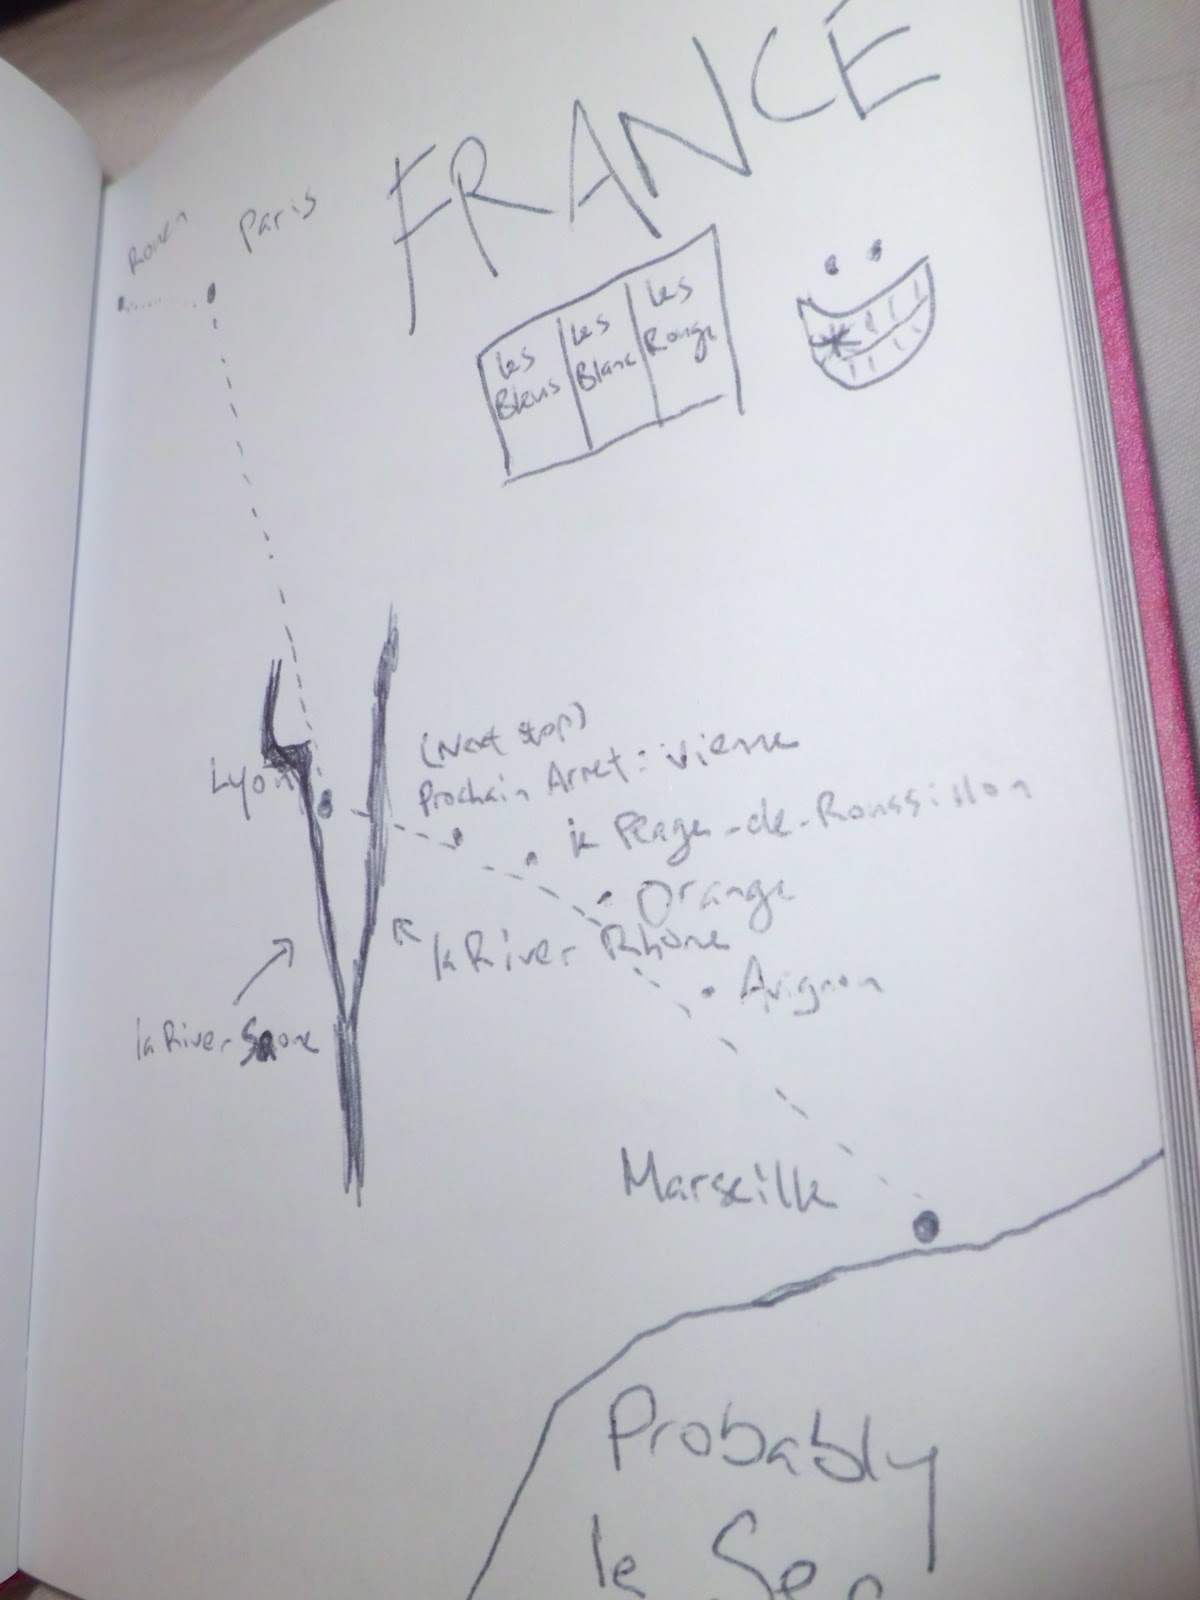 FRANCE
Rouen
Paris
les
Bleus
les
Blanc
les
Rouge
Lyon
(Next stop)
Prochain Arret: Vienne
le Peage-de-Roussillon
Orange
la River Rhone
Avignon
la River Saone
Marseille
Probably
le Sea